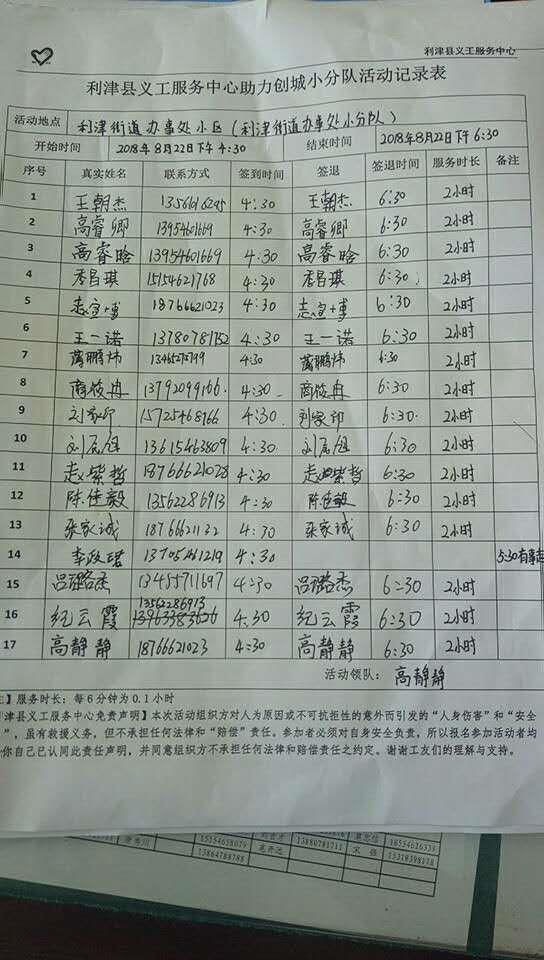 利津县义工服务中心
利津县义工服务中心助力创城小分队活动记录表
活动地点 利津街道办事处小区（利津街道办事处小分队）
开始时间 2018年8月22日下午4:30 结束时间 2018年8月22日下午6:30
序号 真实姓名 联系方式 签到时间 签退 签退时间 服务时长 备注
1 王朝杰 4:30 王朝杰 6:30 2小时
2 高睿卿 13954601669 4:30 高睿卿 6:30 2小时
3 高睿晗 13954601669 4:30 高睿晗 6:30 2小时
4 季昌琪 15154621768 4:30 季昌琪 6:30 2小时
5 18766621023 4:30 6:30 2小时
6 王一诺 13780781752 4:30 王一诺 6:30 2小时
7 蔺鹏炜 4:30 蔺鹏炜 6:30 2小时
8 商俊冉 13792099166 4:30 商俊冉 6:30 2小时
9 15725468166 4:30 6:30 2小时
10 13615463809 4:30 6:30 2小时
11 赵紫哲 18766621028 4:30 赵紫哲 6:30 2小时
12 陈佳毅 13562286913 4:30 陈佳毅 6:30 2小时
13 张家诚 18766621132 4:30 张家诚 6:30 2小时
14 李政珺 4:30 5:30有事
15 吕璐杰 13455711697 4:30 吕璐杰 6:30 2小时
13562286913
16 纪云霞 4:30 纪云霞 6:30 2小时
17 高静静 18766621023 4:30 高静静 6:30 2小时
活动领队：高静静
】服务时长：每6分钟为0.1小时
津县义工服务中心免责声明】本次活动组织方对人为原因或不可抗拒性的意外而引发的“人身伤害”和“安全
”，虽有救援义务，但不承担任何法律和“赔偿”责任。参加者必须对自身安全负责，所以报名参加活动者均
你自己已认同此责任声明，并同意组织方不承担任何法律和赔偿责任之约定。谢谢工友们的理解与支持。
15154658079 13880781711 18554626334
13864788788 15318398178